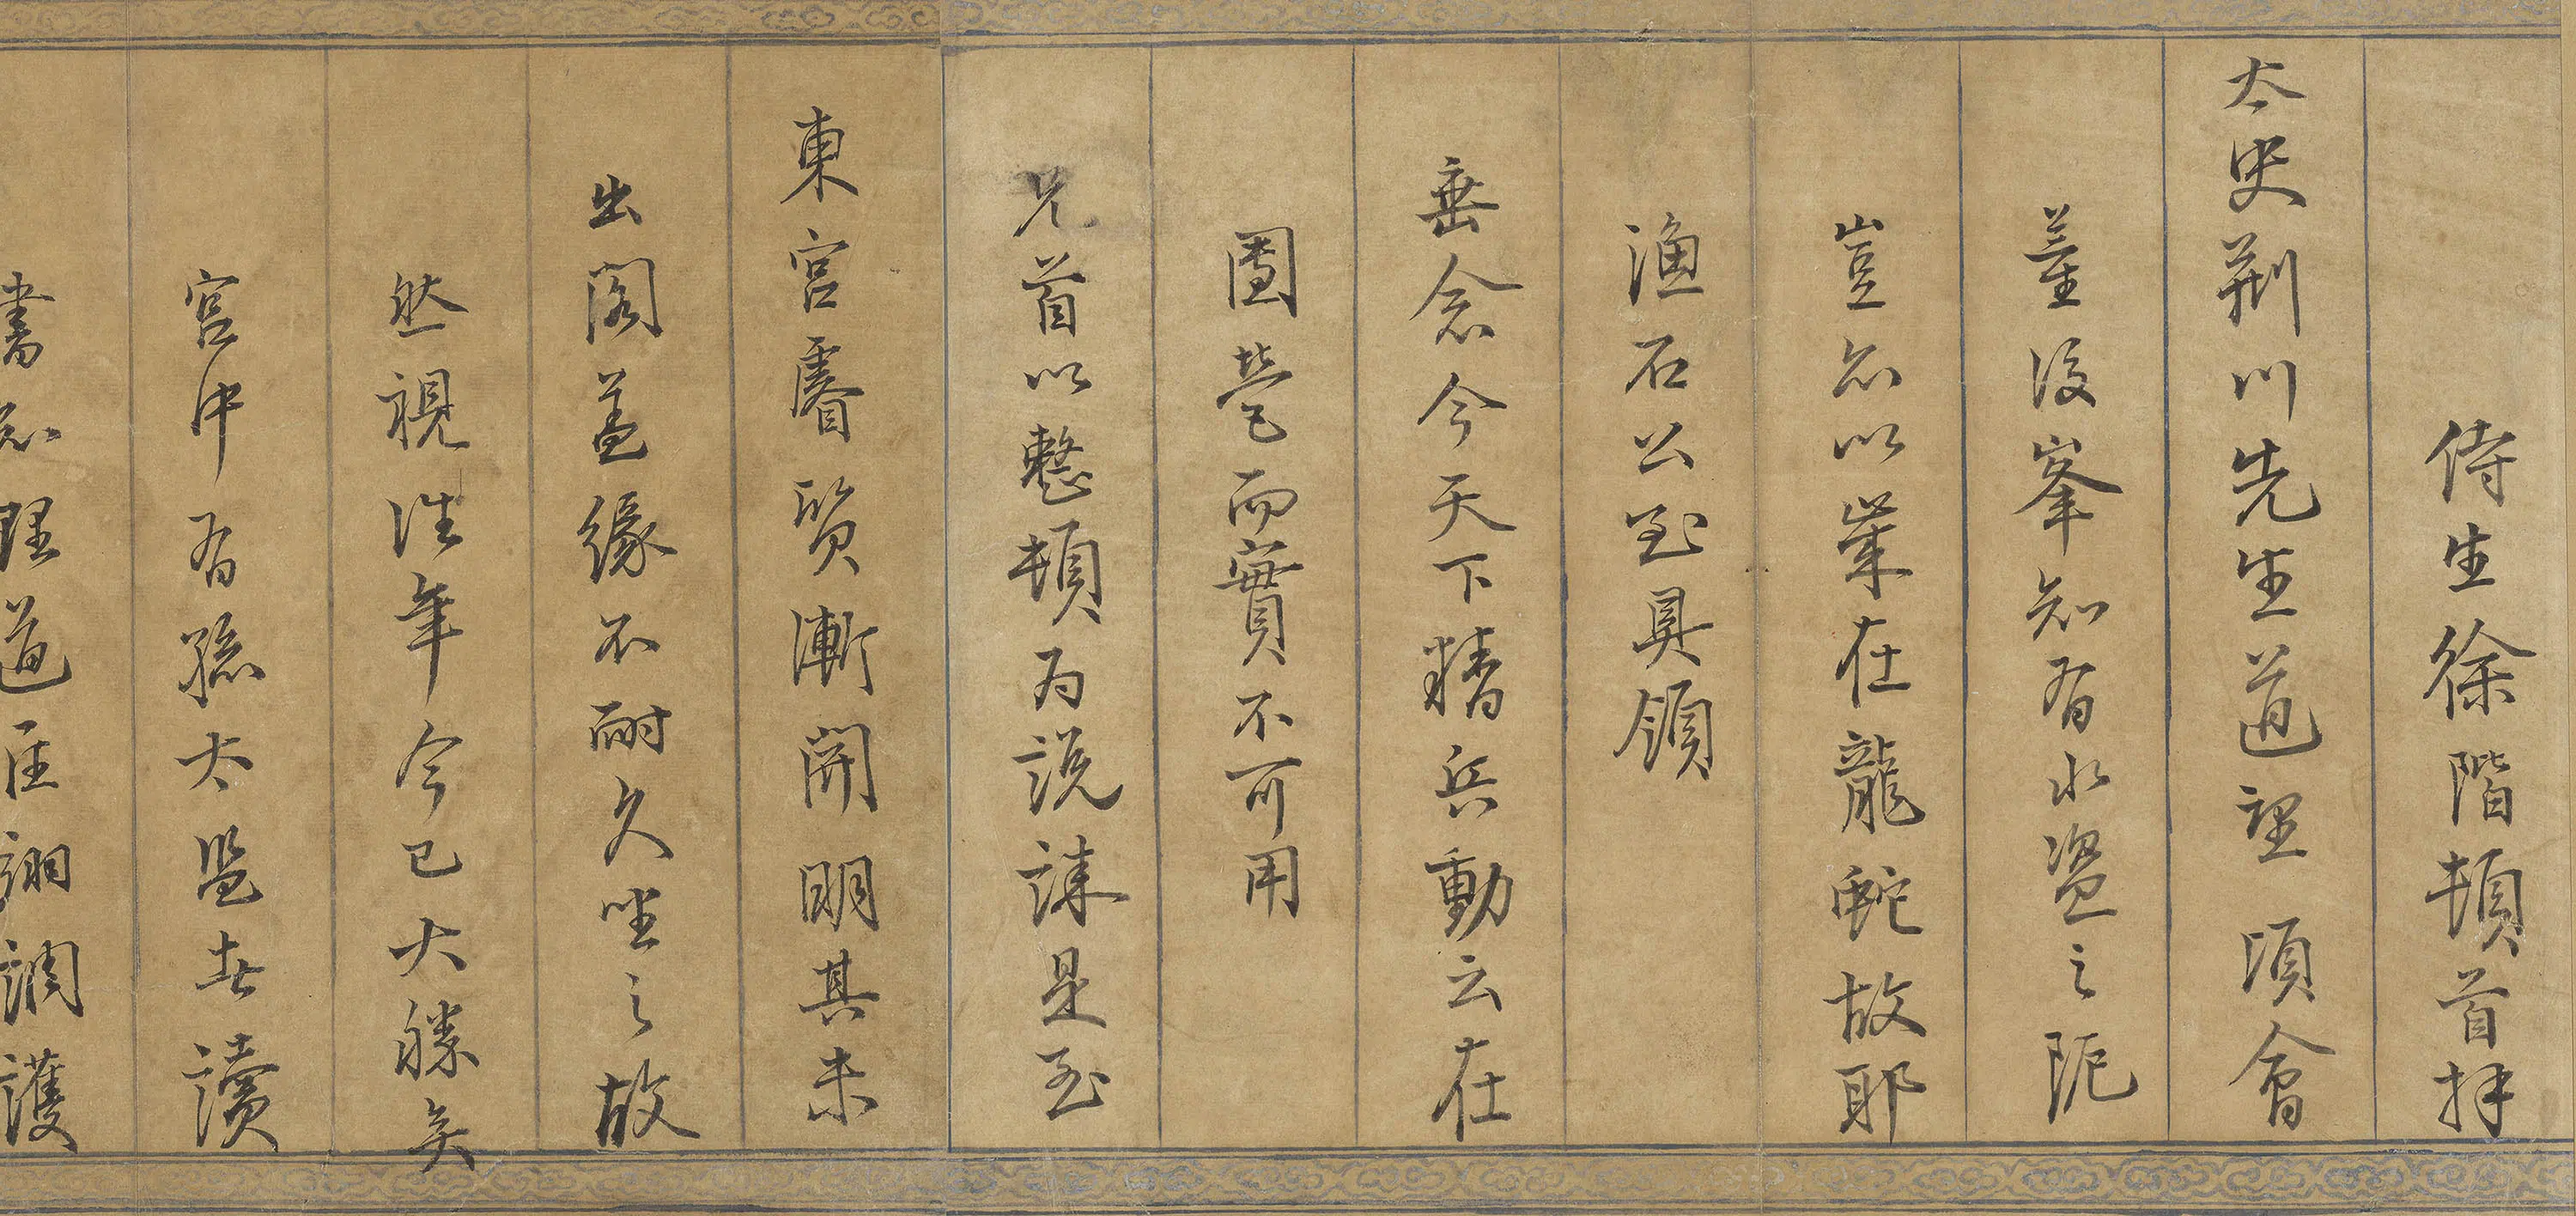 侍生徐階頓首拜
太史荊川先生道望頃會
董後峯知有水盜之阨
豈亦以業在龍蛇故耶
漁石公至具領
垂念今天下精兵動云在
團營而實不可用
兄首以整頓為說誅是至
東宮睿質漸開明其未
出閣盖緣不耐久坐之故
然視往年今已大勝矣
宮中有孫太監者讀
書知理道涯調護